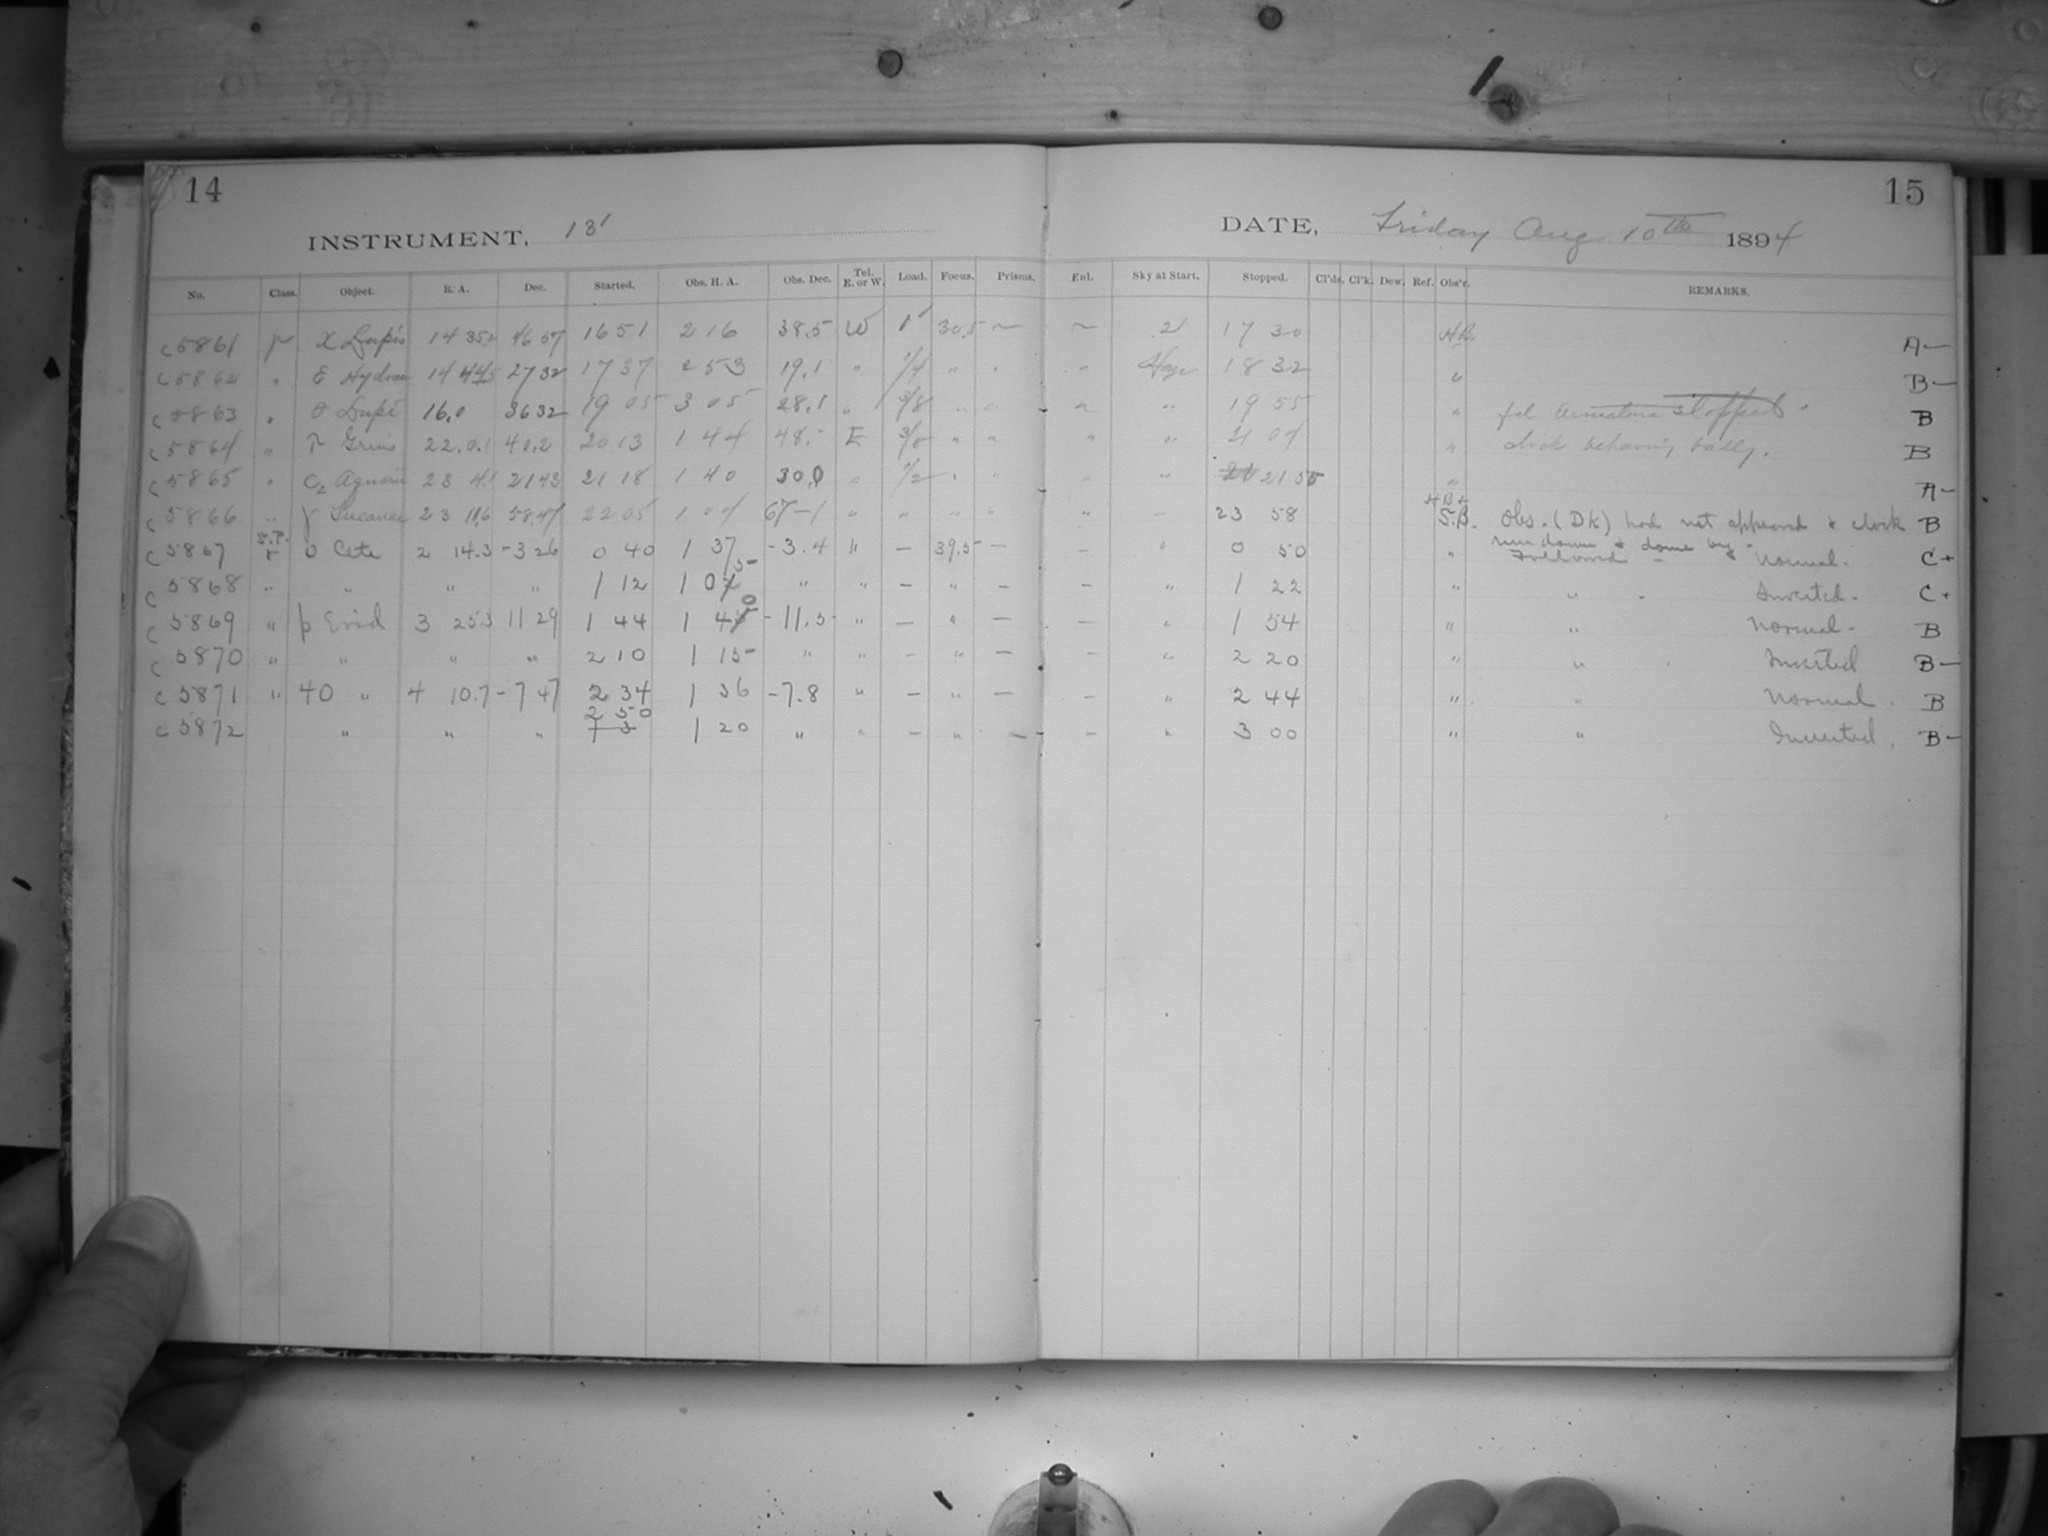 14
15
INSTRUMENT, 13'
DATE, Friday Aug 10th 1894
No. Class. Object. R. A. Dec. Started. Obs. H. A. Obs. Dec. Tel. E. or W. Load. Focus. Prisms. Enl. Sky at Start. Stopped. Cl'ds. Cl'k. Dew. Ref. Obs'r. REMARKS.
c 5861 r Lupis 14 35.2 46 57 16 51 2 16 38.5 W 1' 30.5 ~ ~ 2 17 30 H.B. A—
c 5862 " E Hydrae 14 27 32 17 37 2 53 19.1 " 1/4 " " " Haze 18 32 " B—
c 5863 " θ Lupi 16.0 36 32 19 05 3 05 28.1 " 3/8 " " " " 19 55 " Armature stopped. B
c 5864 " Gruis 22.0.1 40.2 20 13 1 44 48. E 3/8 " " " " 21 04 " clock behaving badly. B
c 5865 " C2 Aquarii 23 4.1 21 43 21 18 1 40 30.0 " 1/2 " " " " 21 55 " A—
c 5866 " γ Tucanae 23 11.6 58.47 22 05 1 04 67-1 " " " " " — 23 58 H B & S.B. Obs. (DK) had not appeared & clock B
run down & dome by
c 5867 S.P. r o Ceti 2 14.3 -3 26 0 40 1 37 -3.4 " — 39.5 — — " 0 50 " Followed — Normal. C+
c 5868 " " " " 1 12 1 05 " " — " — — " 1 22 " " " Inverted. C+
c 5869 " p Erid 3 25.3 11 29 1 44 1 40 -11.5 " — " — — " 1 54 " " Normal - B
c 5870 " " " " 2 10 1 15 " " — " — — " 2 20 " " " Inverted B—
c 5871 " 40 " 4 10.7 -7 47 2 34 1 36 -7.8 " — " — — " 2 44 " " Normal. B
2 50
c 5872 " " " 1 3 1 20 " " — " — — " 3 00 " " Inverted. B—